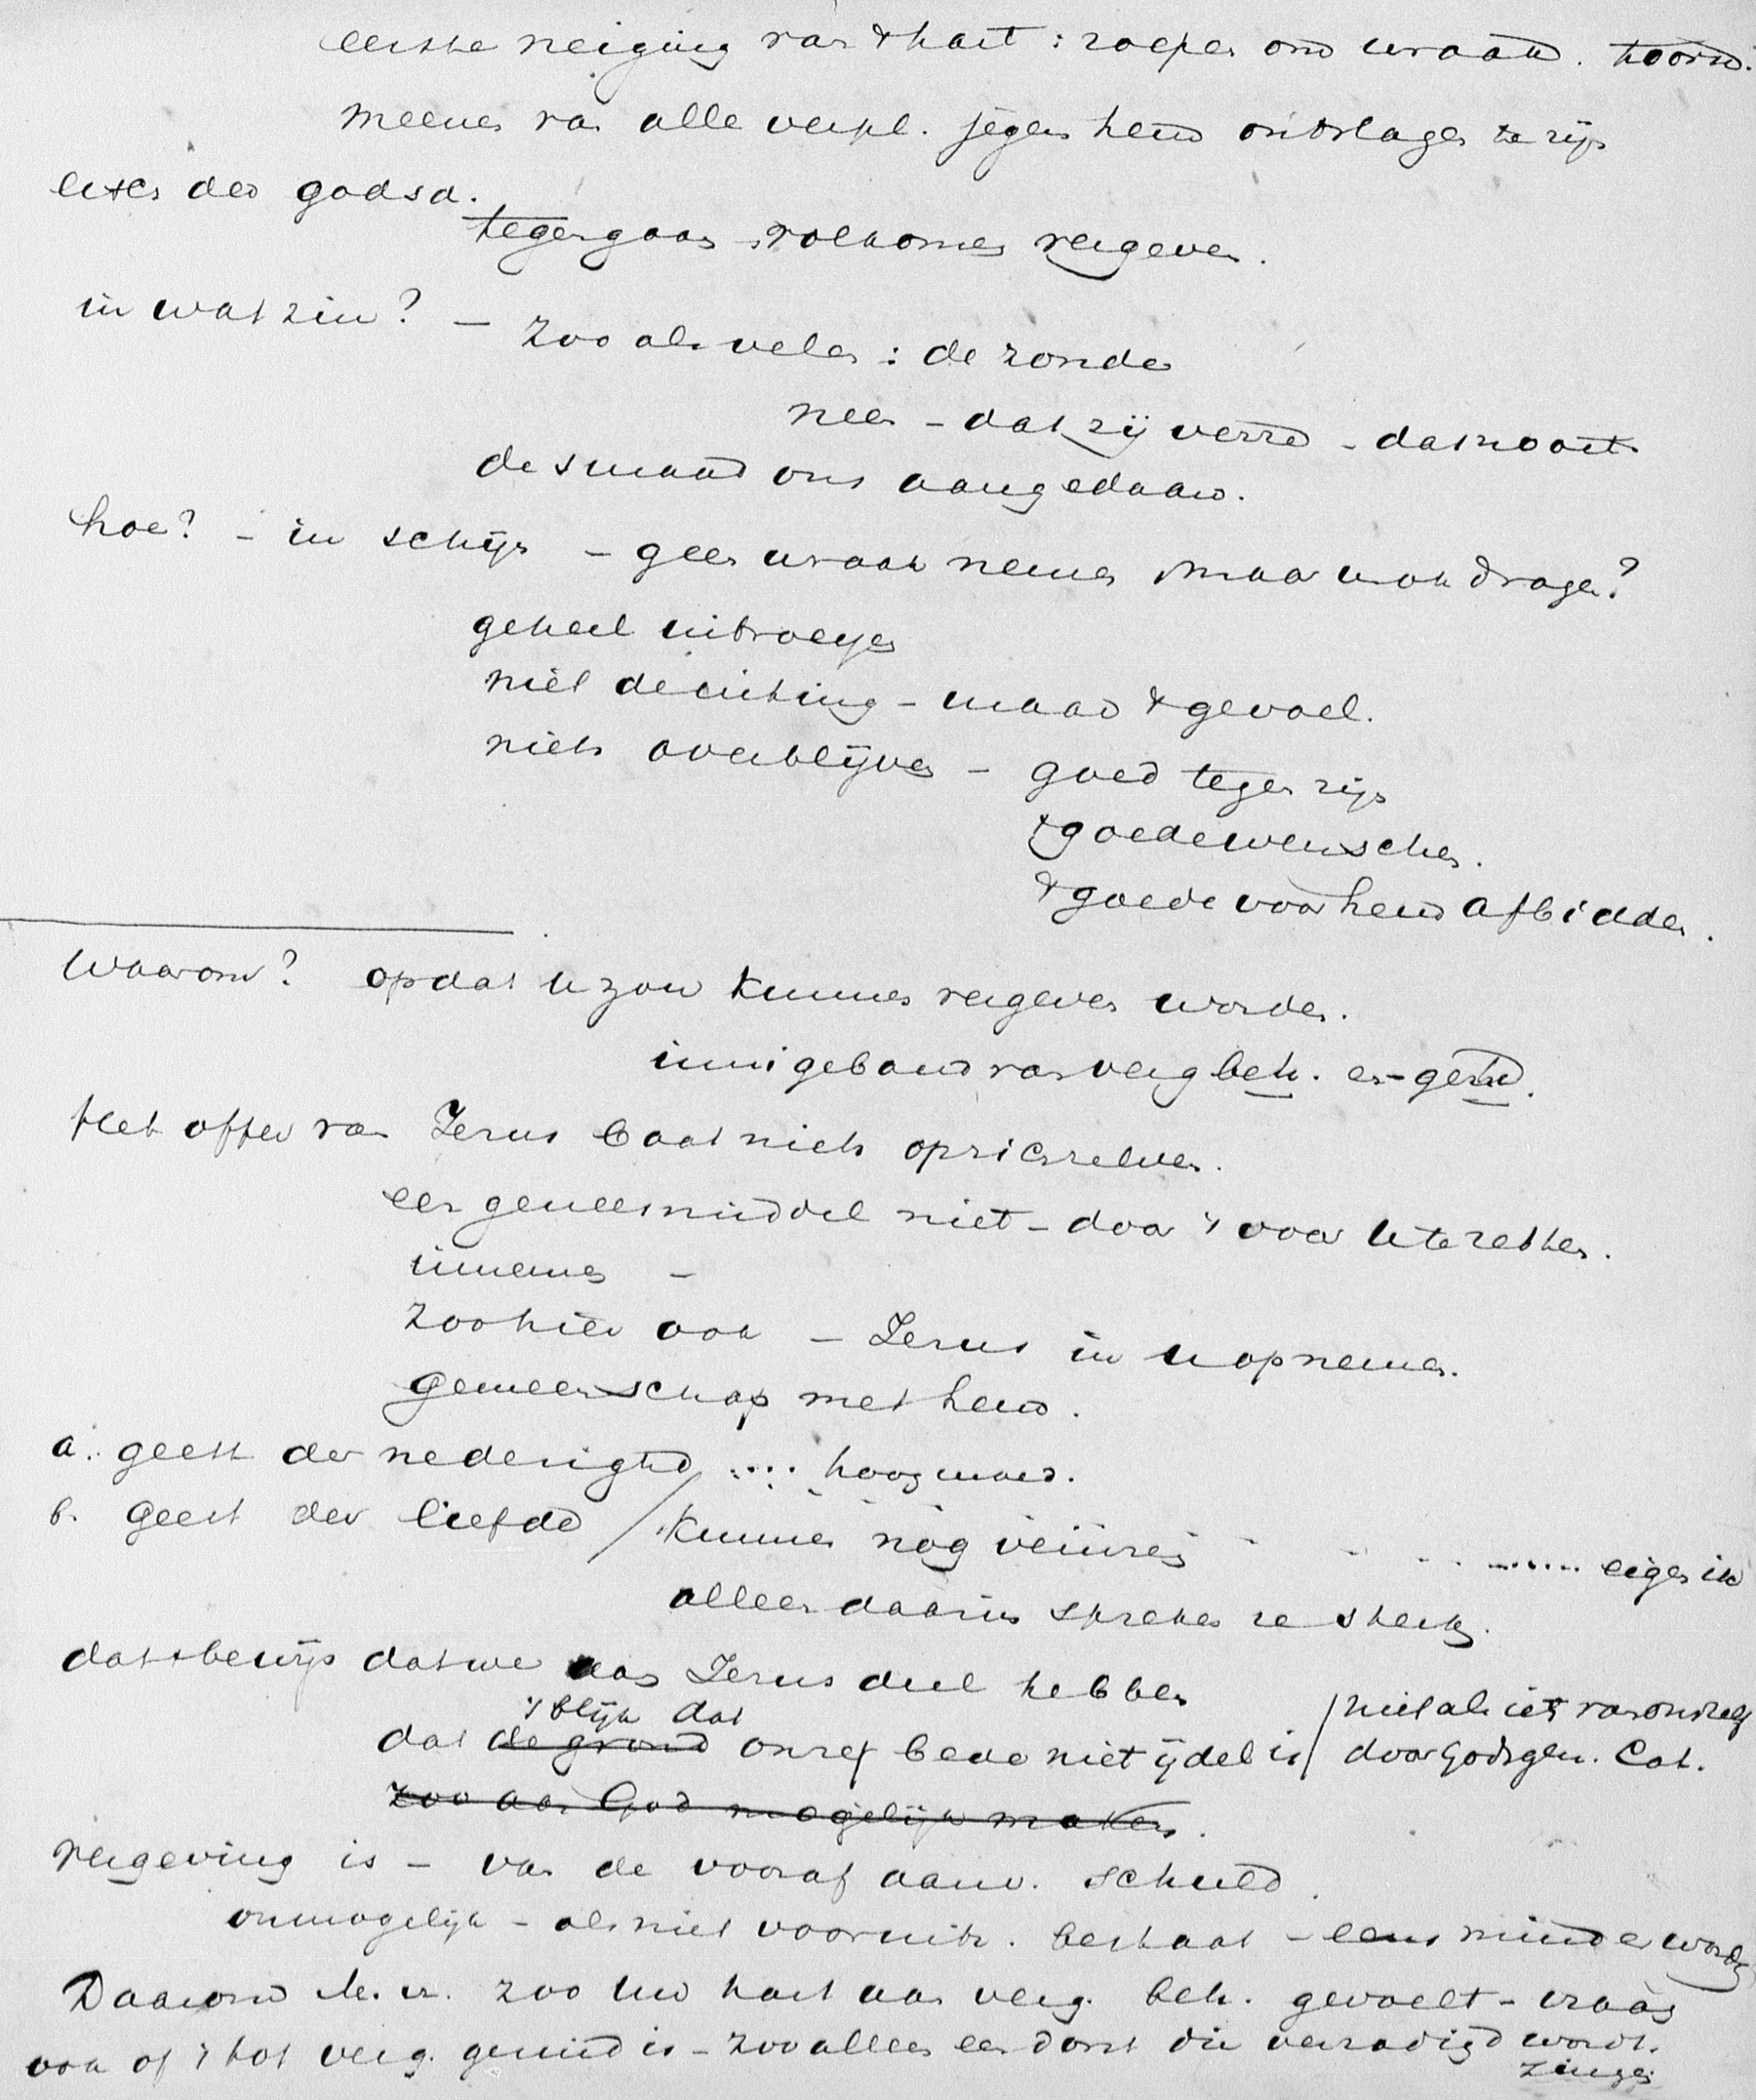 eerste neiging van 't hart: roepen om wraak. toorn.
meenen van alle verpl. jegens hem ontslagen te zijn
eisch der godsd.
tegengaan, volkomen vergeven.
in wat zin? — zooals velen: de zonden
neen – dat zij verre – dat nooit
de smaad ons aangedaan.
hoe? – in schijn – geen wraak nemen, maar wrok dragen?
geheel uitroeyen
niet de uiting – maar 't gevoel.
niets overblijven – goed tegen zijn
't goede wenschen.
't goede voor hem afbidden.
Waarom? opdat u zou kunnen vergeven worden.
innige band van verg beh. en – gez.hd.
Het offer van Jezus baat niets op zich zelven.
een geneesmiddel niet – door 't voor u te zetten.
innemen –
zoo hier ook – Jezus in u opnemen.
gemeenschap met hem.
a. geest der nederighd .... hoogmoed.
b. geest der liefde / kunnen nog veinzen ........ eigen ik
alleen daarin spreken ze sterk.
dat 't bewijs dat we aan Jezus deel hebben
't blijk dat
dat de grond onze bede niet ijdel is / niet als iets van onszelf
door Gods gen. Cat.
zoo aan God mogelijk maken.
vergeving is – van de vooraf aanw. schuld.
onmogelijk – als niet vooruitz. bestaat – eens minder worden
Daarom M. V. zoo uw hart aan verg. beh. gevoelt – vraag
ook of 't tot verg. gezind is – zoo alleen een dorst die verzadigd wordt.
zingen